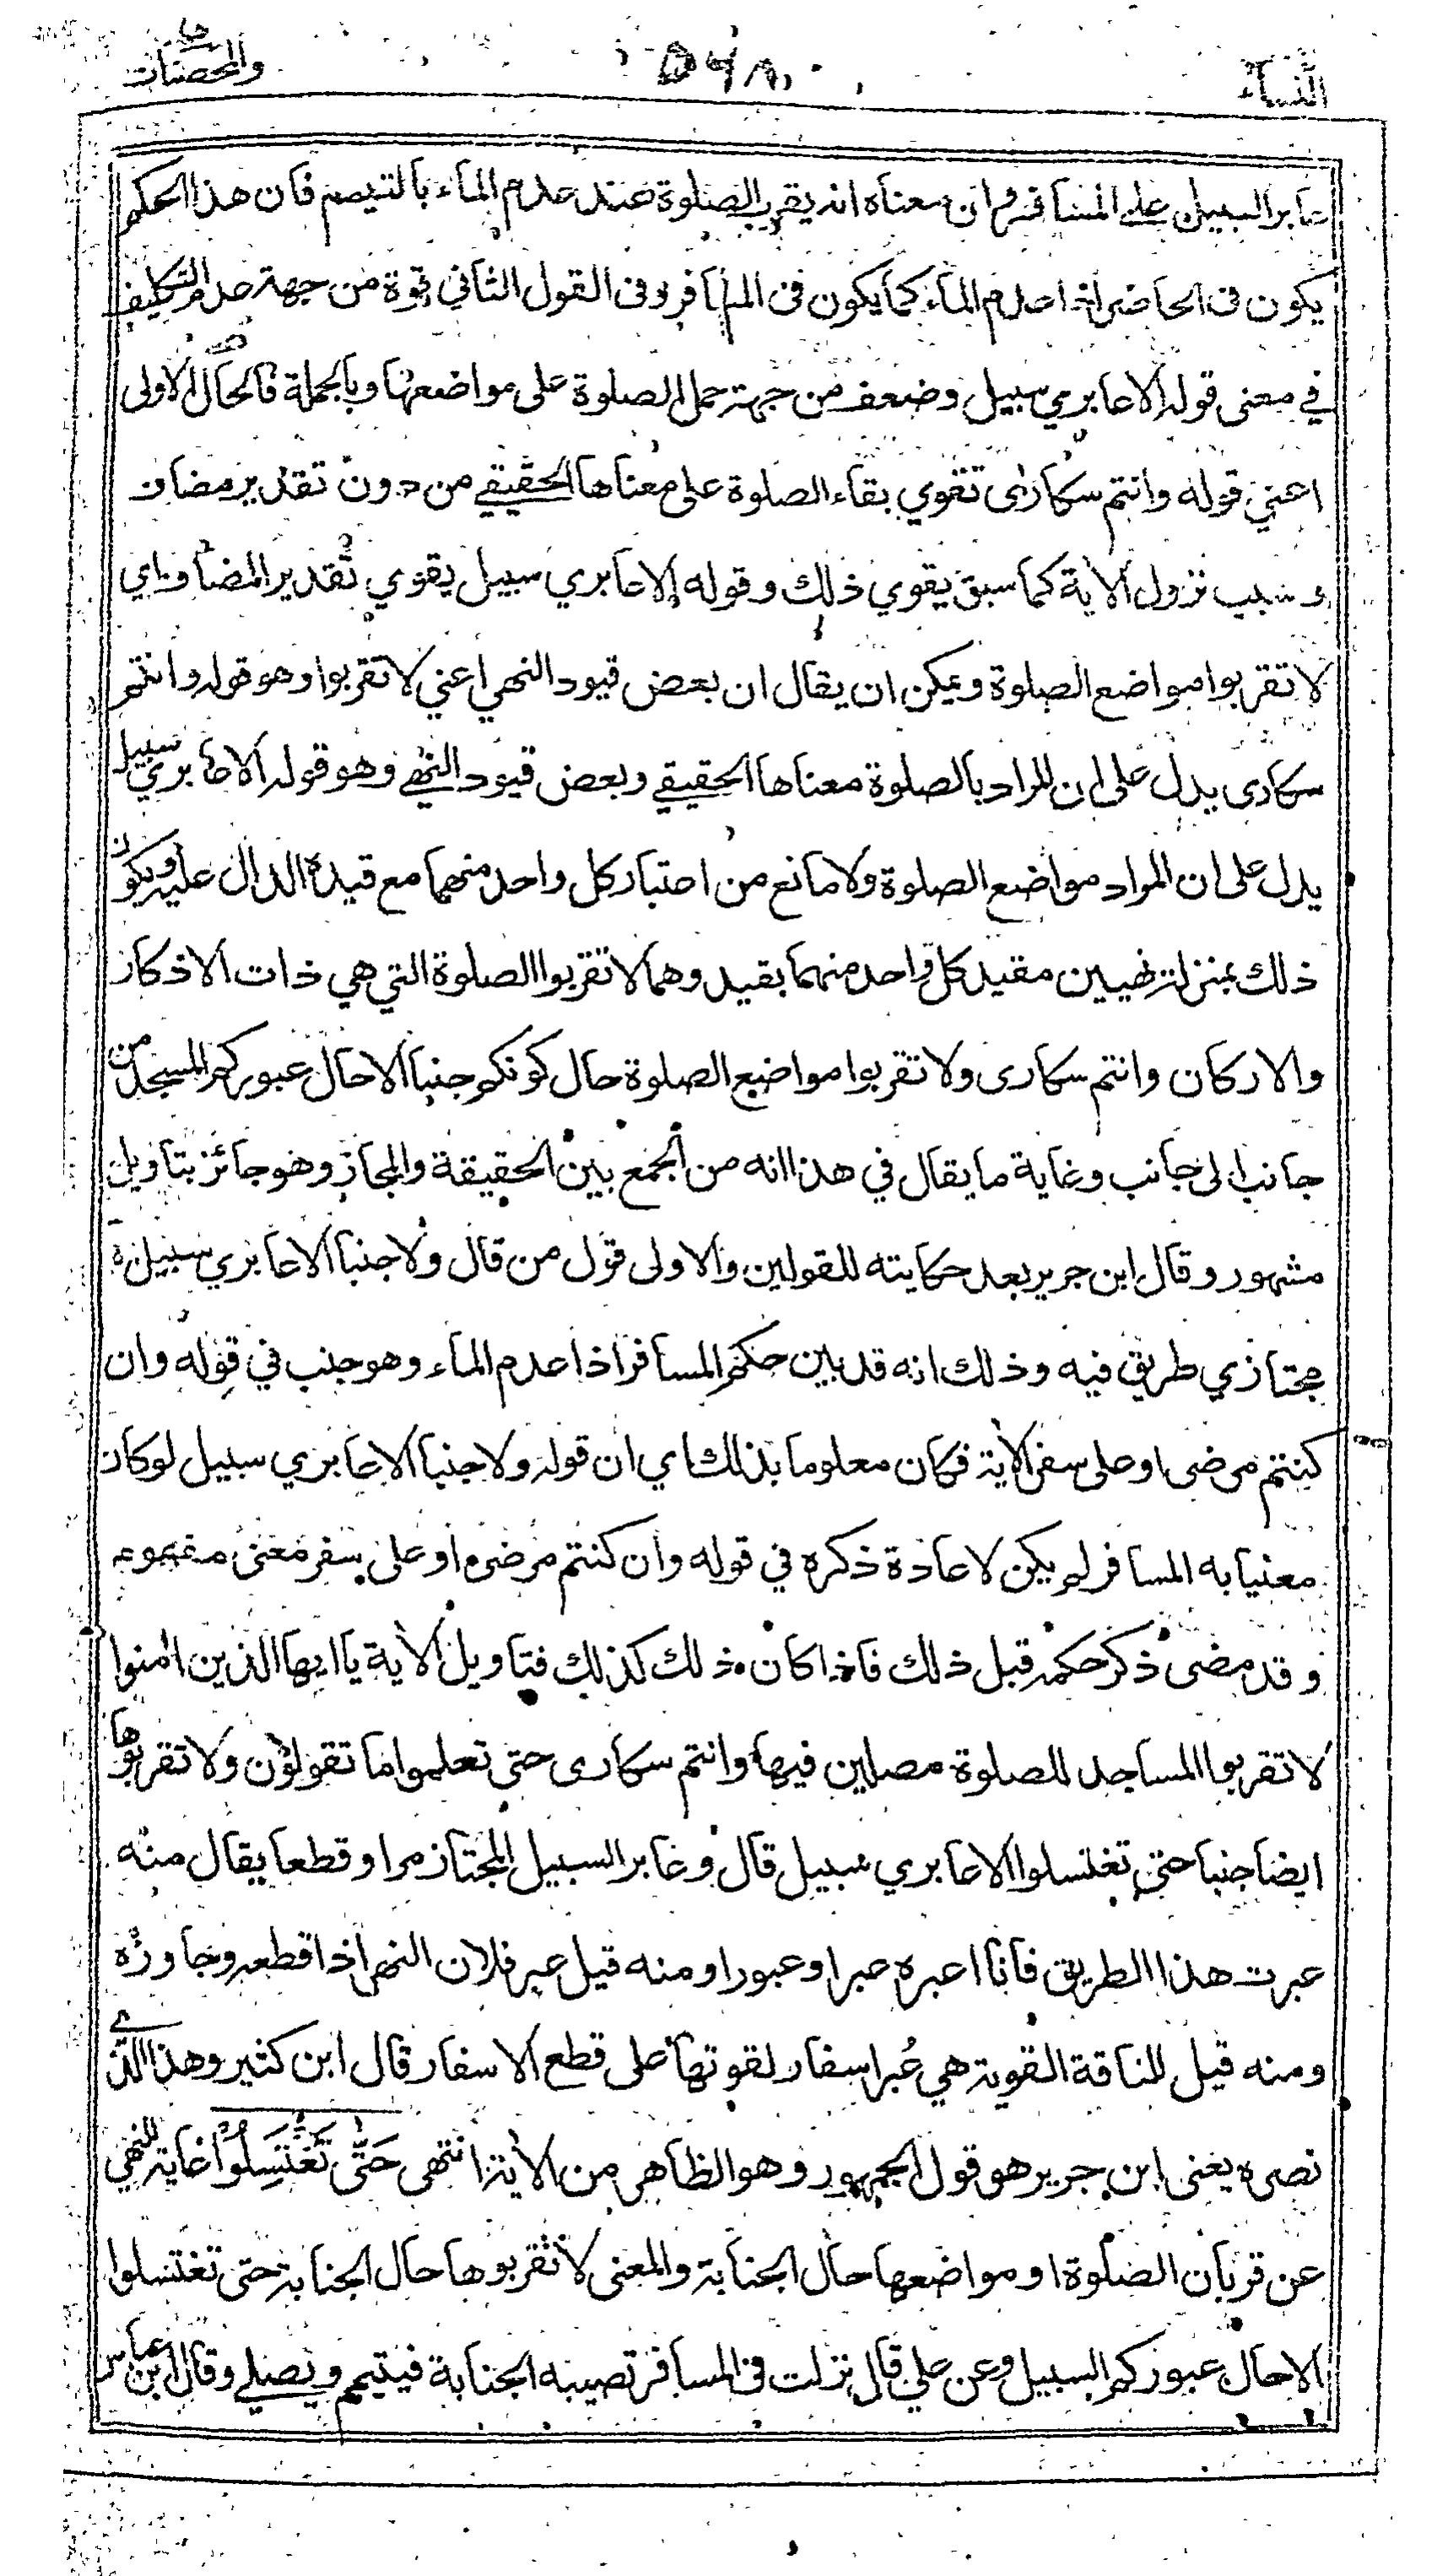 النساء ٥٦٨ والمحصنات
عابر السبيل على المسافر وان معناه انه يقرب الصلوة عند عدم الماء بالتيمم فان هذا الحكم
يكون فى الحاضر اذا عدم الماء كما يكون فى المسافر وفى القول الثاني قوة من جهة عدم التكليف
في معنى قوله الا عابري سبيل وضعف من جهة حمل الصلوة على مواضعها وبالجملة فالحال الاولى
اعني قوله وانتم سكارى تقوي بقاء الصلوة على معناها الحقيقي من دون تقدير مضاف
وسبب نزول الأية كما سبق يقوي ذلك وقوله إلا عابري سبيل يقوي تقدير المضاف اي
لا تقربوا مواضع الصلوة ويمكن ان يقال ان بعض قيود النهي اعني لا تقربوا وهو قوله وانتم
سكارى يدل على ان المراد بالصلوة معناها الحقيقي وبعض قيود النهي وهو قوله الا عابري سبيل
يدل على ان المراد مواضع الصلوة ولا مانع من اعتبار كل واحد منهما مع قيده الدال عليه ويكون
ذلك بمنزلة نهيين مقيد كل واحد منهما بقيد وهما لا تقربوا الصلوة التي هي ذات الاذكار
والاركان وانتم سكارى ولا تقربوا مواضع الصلوة حال كونكم جنبا الا حال عبوركم المسجد من
جانب الى جانب وغاية ما يقال في هذا انه من الجمع بين الحقيقة والمجاز وهو جائز بتاويل
مشهور وقال ابن جرير بعد حكايته للقولين والاولى قول من قال ولا جنبا الا عابري سبيل
مجتازي طريق فيه وذلك انه قد بين حكم المسافر اذا عدم الماء وهو جنب في قوله وان
كنتم مرضى او على سفر الأية فكان معلوما بذلك اي ان قوله ولا جنبا الا عابري سبيل لو كان
معنيا به المسافر لم يكن لاعادة ذكره في قوله وان كنتم مرضى او على سفر معنى مفهوم
وقد مضى ذكر حكمه قبل ذلك فاذا كان ذلك كذلك فتاويل الأية يا ايها الذين امنوا
لا تقربوا المساجد للصلوة مصلين فيها وانتم سكارى حتى تعلموا ما تقولون ولا تقربوها
ايضا جنبا حتى تغتسلوا الا عابري سبيل قال وعابر السبيل المجتاز مرا وقطعا يقال منه
عبرت هذا الطريق فانا اعبره عبرا وعبورا ومنه قيل عبر فلان النهر اذا قطعه وجاوزه
ومنه قيل للناقة القوية هي عُبر اسفار لقوتها على قطع الاسفار قال ابن كثير وهذا الذي
نصره يعنى ابن جرير هو قول الجمهور وهو الظاهر من الأية انتهى حَتَّى تَغْتَسِلُوْا غاية للنهي
عن قربان الصلوة او مواضعها حال الجنابة والمعنى لا تقربوها حال الجنابة حتى تغتسلوا
الا حال عبوركم السبيل وعن علي قال نزلت فى المسافر تصيبه الجنابة فيتيمم ويصلي وقال ابن عباس